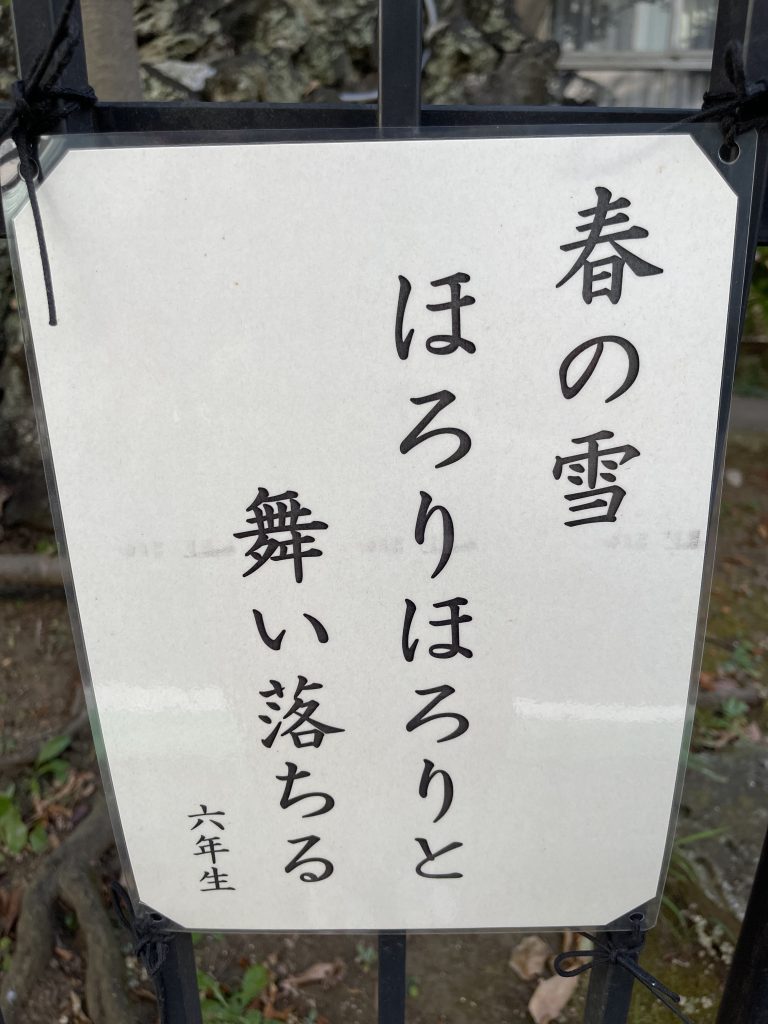 春の雪
ほろりほろりと
舞い落ちる
六年生